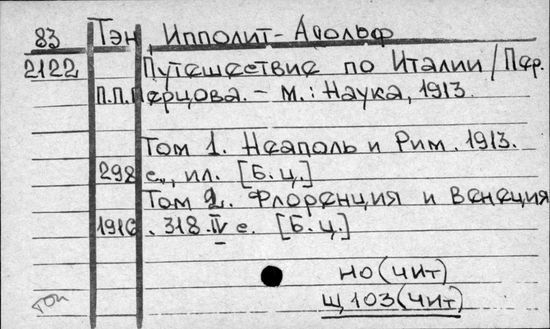 83 Тэн Ипполит-Адольф
2122 Путешествие по Италии/Пер.
П.П.Перцова. – М.: Наука, 1913.
Том 1. Неаполь и Рим. 1913.
298 с., ил. [Б.ц.]
Том 2. Флоренция и Венеция
1916. 318. IV с. [Б.ц.]
НО (ЧИТ)
Щ 103 (ЧИТ)